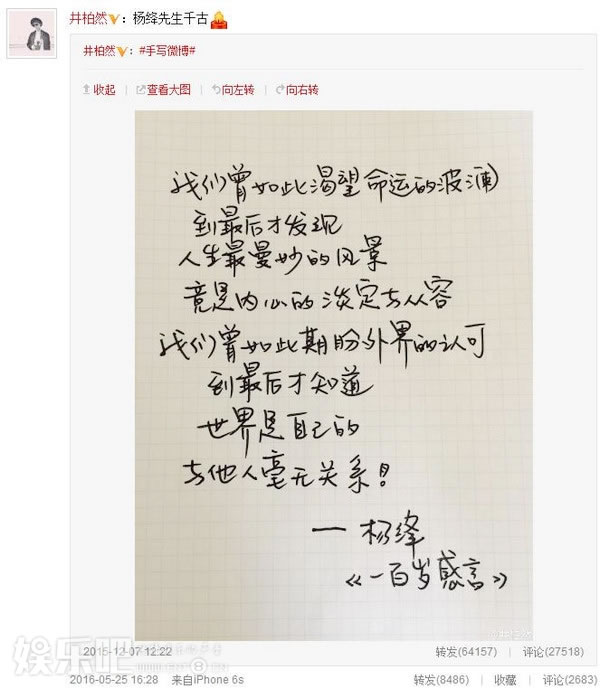 井柏然：杨绛先生千古
井柏然：#手写微博#
收起 | 查看大图 | 向左转 | 向右转
我们曾如此渴望命运的波澜
到最后才发现
人生最曼妙的风景
竟是内心的淡定与从容
我们曾如此期盼外界的认可
到最后才知道
世界是自己的
与他人毫无关系！
— 杨绛
《一百岁感言》
井柏然
2015-12-07 12:22 转发(64157) | 评论(27518)
娱乐吧
2016-05-25 16:28 来自iPhone 6s 转发(8486) | 收藏 | 评论(2683)